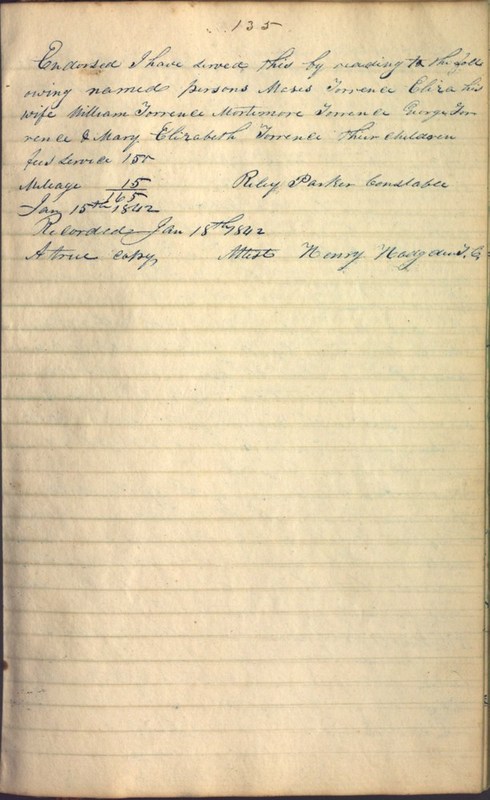 135
Endorsed I have served this by reading to the foll
owing named persons Moses Torrence Eliza his
wife William Torrence Mortimore Torrence George Tor
rence & Mary Elizabeth Torrence their children
fees service 150
Mileage 15 Riley Parker Constable
165
Jan 15th 1842
Recorded Jan 18th 1842
A true copy Attest Henry Hodgden T. C.